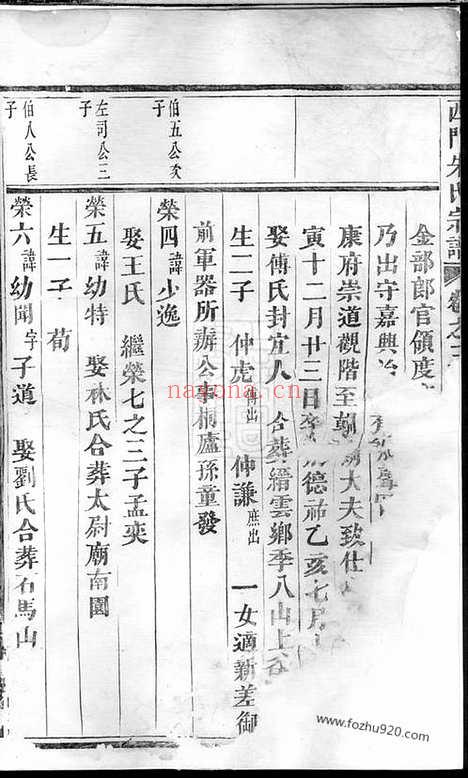 西門朱氏宗譜 卷之二
金部郎官領度
乃出守嘉興
康府崇道觀階至朝 大夫致仕
寅十二月廿三日 德祐乙亥七月
娶傅氏封宜人 合葬縉雲鄉季八山上
生二子 仲虎傅出 仲謙庶出 一女適新差御
前軍器所辦公事桐廬孫童發
伯五公次子
榮四諱少逸
娶王氏 繼榮七之三子孟奕
左司公三子
榮五諱幼特 娶林氏合葬太尉廟南園
生一子 荀
伯八公長子
榮六諱幼聞字子道 娶劉氏合葬石馬山
nayona.cn
www.fozhu920.com